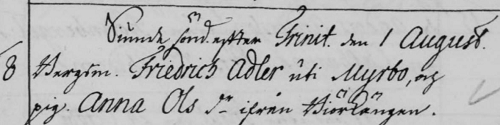 Siunde Sönd. efter Trinit. den 1 August.
8 Bergsm. Friedrich Adler uti Myrbo, och
pig. Anna Ols dr ifrån Biörkängen.